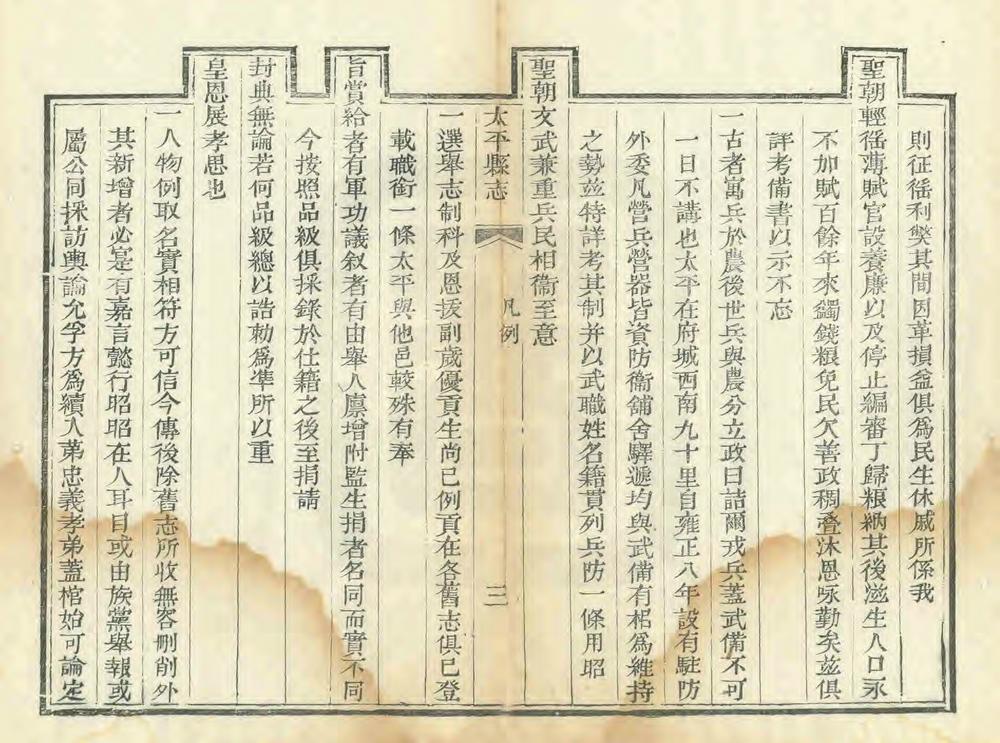 則征徭利獘其間因革損益俱爲民生休戚所係我
聖朝輕徭薄賦官設養廉以及停止編審丁歸粮納其後滋生人口永
不加賦百餘年來蠲錢粮免民欠善政稠叠沐恩咏勤矣兹俱
詳考備書以示不忘
一古者寓兵於農後世兵與農分立政曰詰爾戎兵蓋武備不可
一日不講也太平在府城西南九十里自雍正八年設有駐防
外委凡營兵營器皆資防衞舖舍驛遞均與武備有相爲維持
之勢兹特詳考其制并以武職姓名籍貫列兵防一條用昭
聖朝文武兼重兵民相衞至意
太平縣志
凡例
三
一選舉志制科及恩拔副歲優貢生尚已例貢在各舊志俱已登
載職銜一條太平與他邑較殊有奉
旨賞給者有軍功議叙者有由舉人廪增附監生捐者名同而實不同
今按照品級俱採錄於仕籍之後至捐請
封典無論若何品級總以誥勅爲凖所以重
皇恩展孝思也
一人物例取名實相符方可信今傳後除舊志所收無容刪削外
其新增者必寔有嘉言懿行昭昭在人耳目或由族黨舉報或
屬公同採訪輿論允孚方爲續入苐忠義孝弟蓋棺始可論定